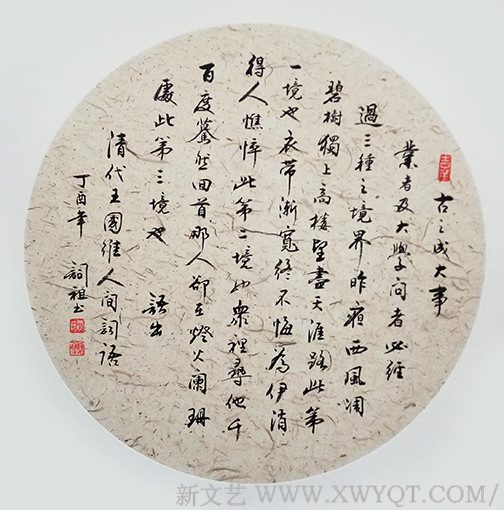 古之成大事
業者及大學問者必經
過三種之境界昨夜西風凋
碧樹獨上高樓望盡天涯路此第
一境也衣帶漸寬終不悔為伊消
得人憔悴此第二境也衆裡尋他千
百度驀然回首那人卻在燈火闌珊
處此第三境也
語出
清代王國維人間詞語
丁酉年 詞祖書
新文艺 WWW.XWYQT.COM/